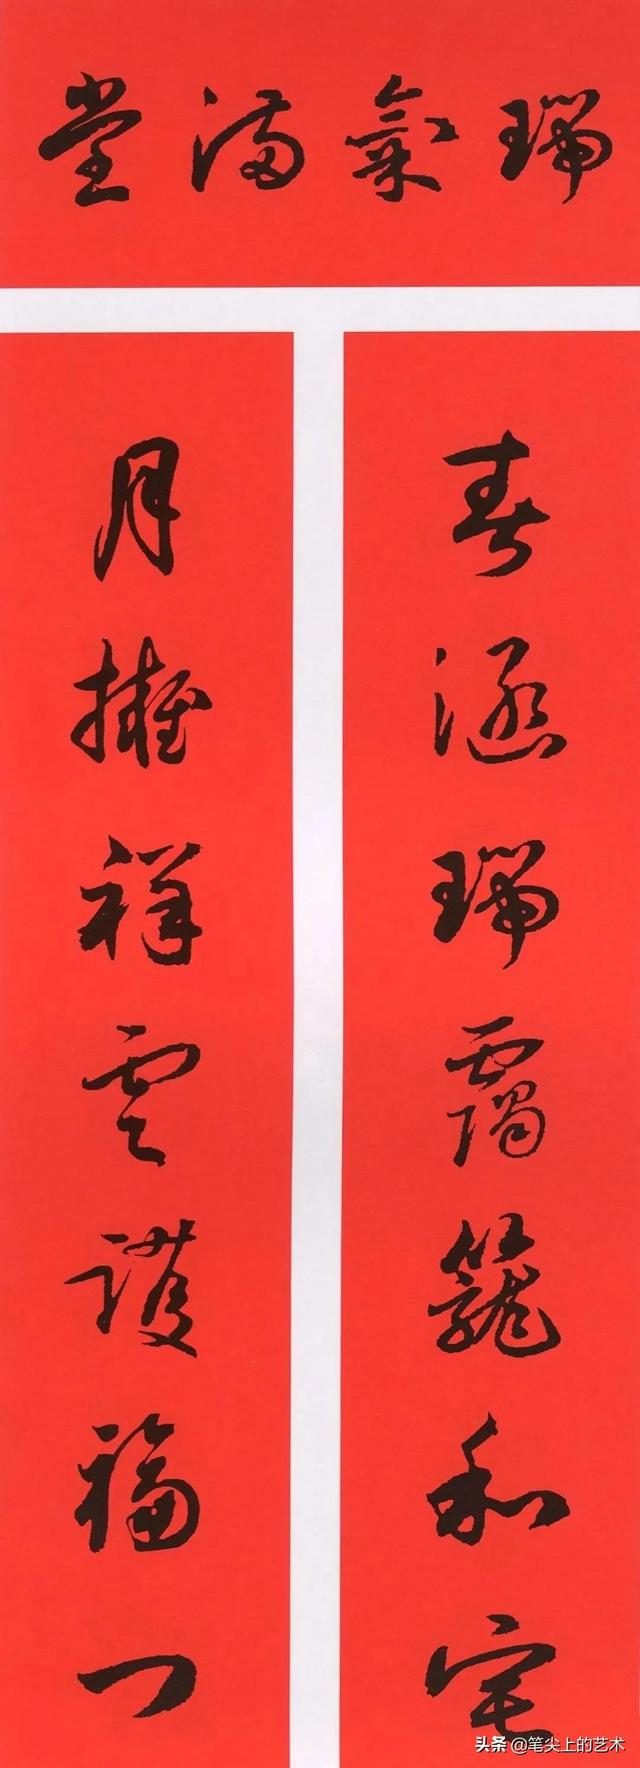 瑞氣滿堂
春涵瑞靄籠和宅
月擁祥雲護福門
头条 @笔尖上的艺术